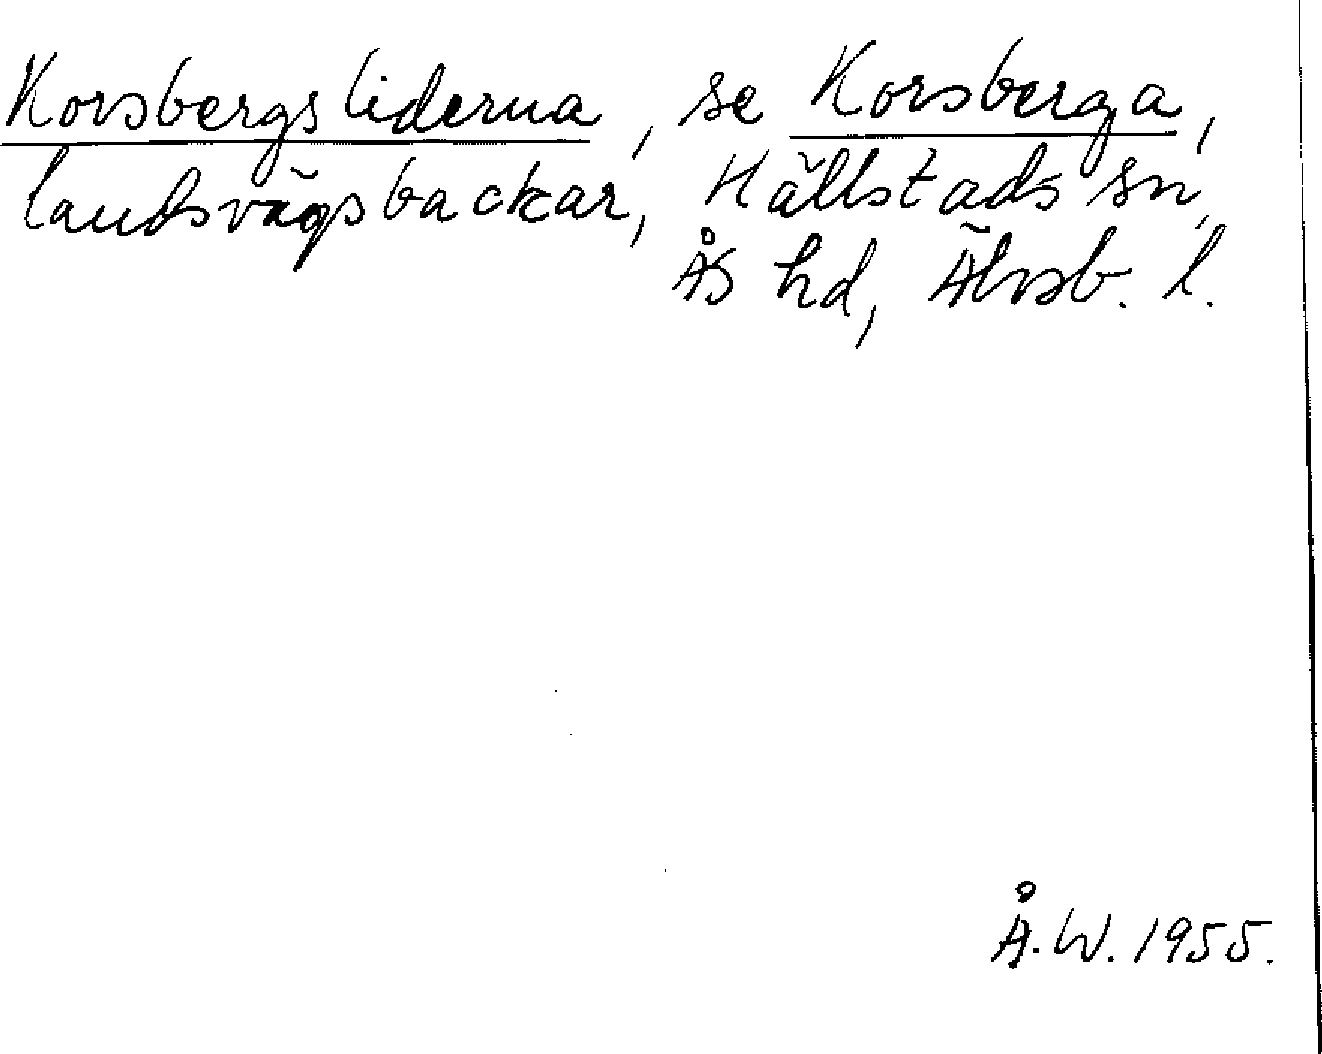 Korsbergsliderna, se Korsberga,
landsvägsbackar, Hällstads sn,
Ås hd, Älvsb. l.
Å.W. 1955.